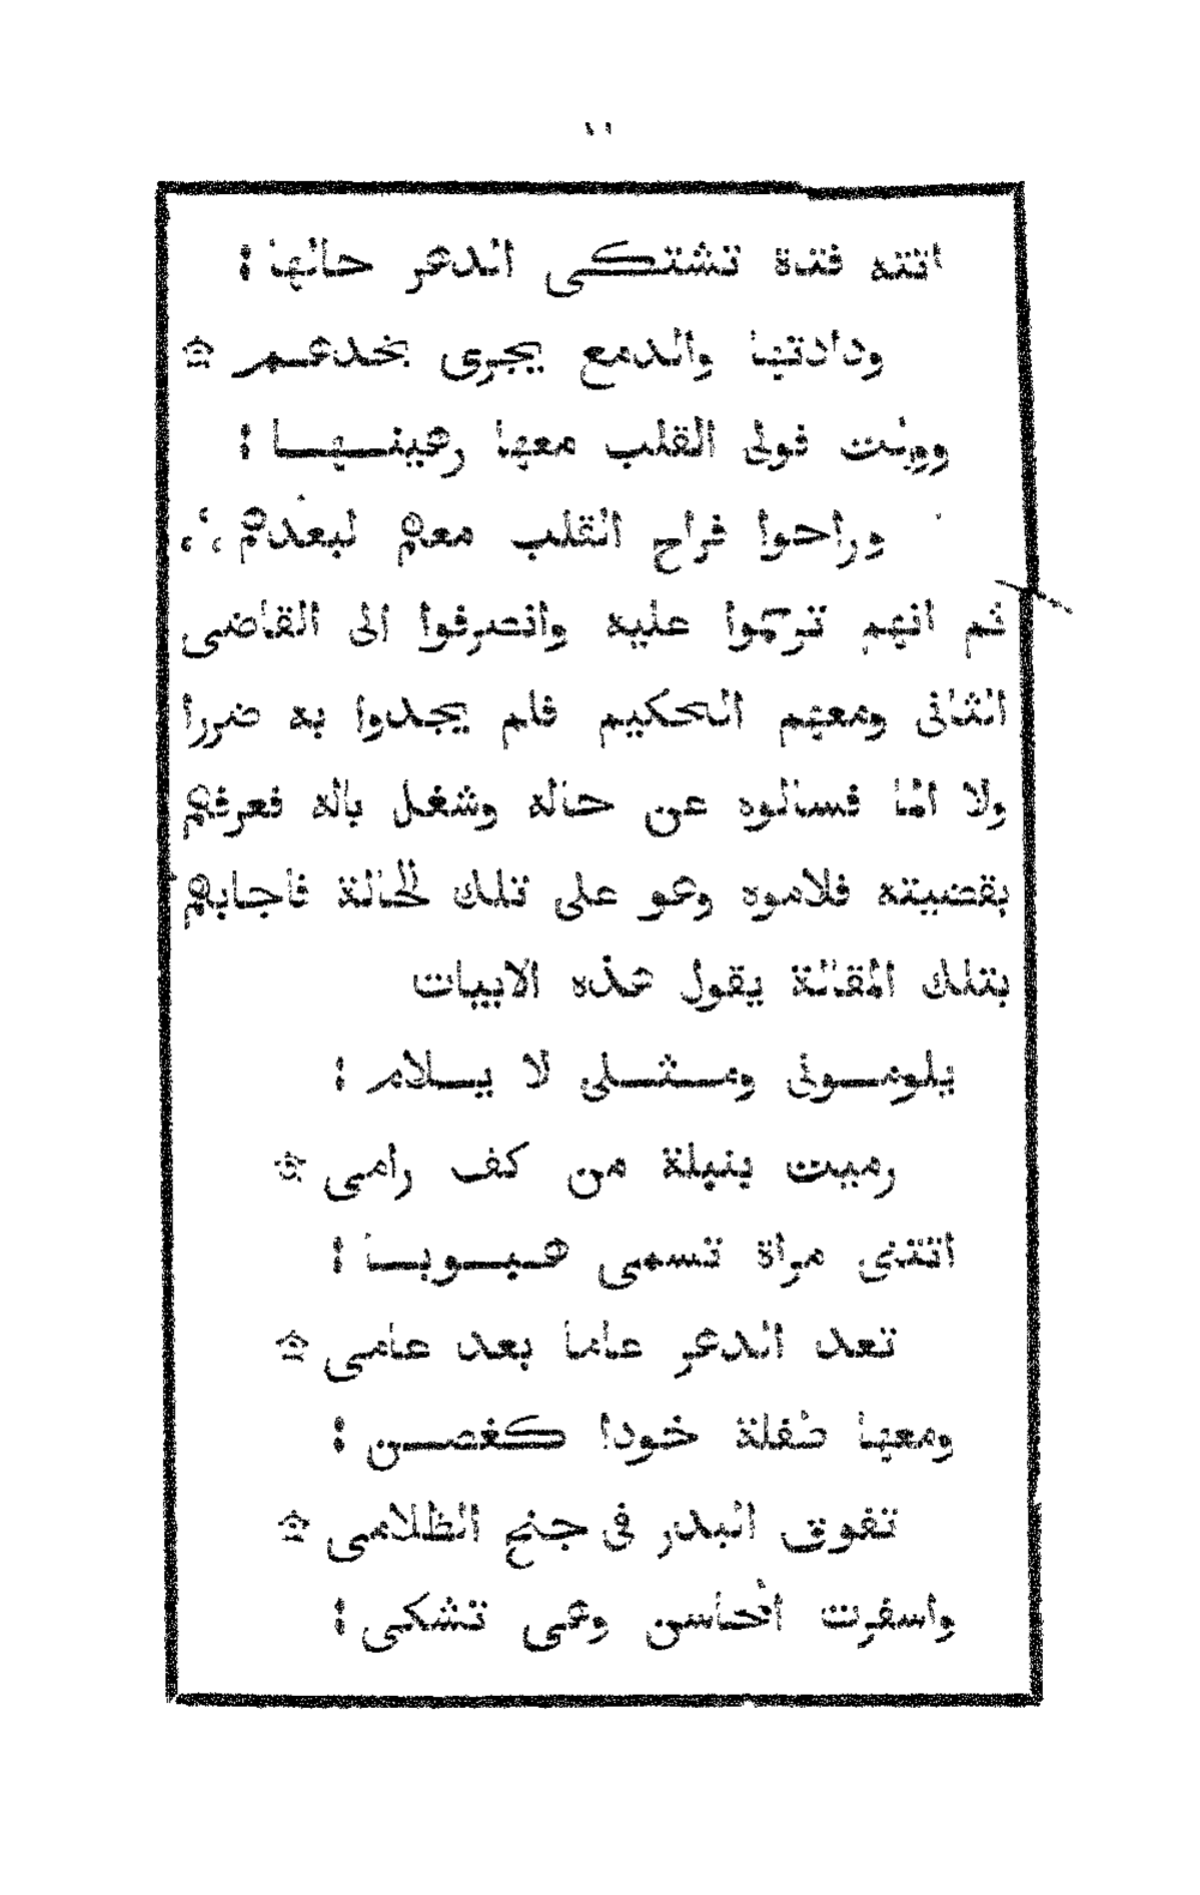 ١١
اتته فتنة تشتكى الدهر حالها :
ودادتها والدمع يجرى بخدهم
وونت فولى القلب معها رهينها :
وراحوا فراح القلب معهم لبعدهم
ثم انهم ترحموا عليه وانصرفوا الى القاضى
الثانى ومعهم الحكيم فلم يجدوا به ضررا
ولا الما فسالوه عن حاله وشغل باله فعرفهم
بقضيته فلاموه وهو على تلك الحالة فاجابهم
بتلك المقالة يقول هذه الابيات
يلومونى ومثلى لا يلام :
رميت بنبلة من كف رامى
اتتنى مراة تسمى هبوبا :
تعد الدهر عاما بعد عامى
ومعها طفلة خودا كغصن :
تفوق البدر فى جنح الظلامى
واسفرت المحاسن وهى تشكى :